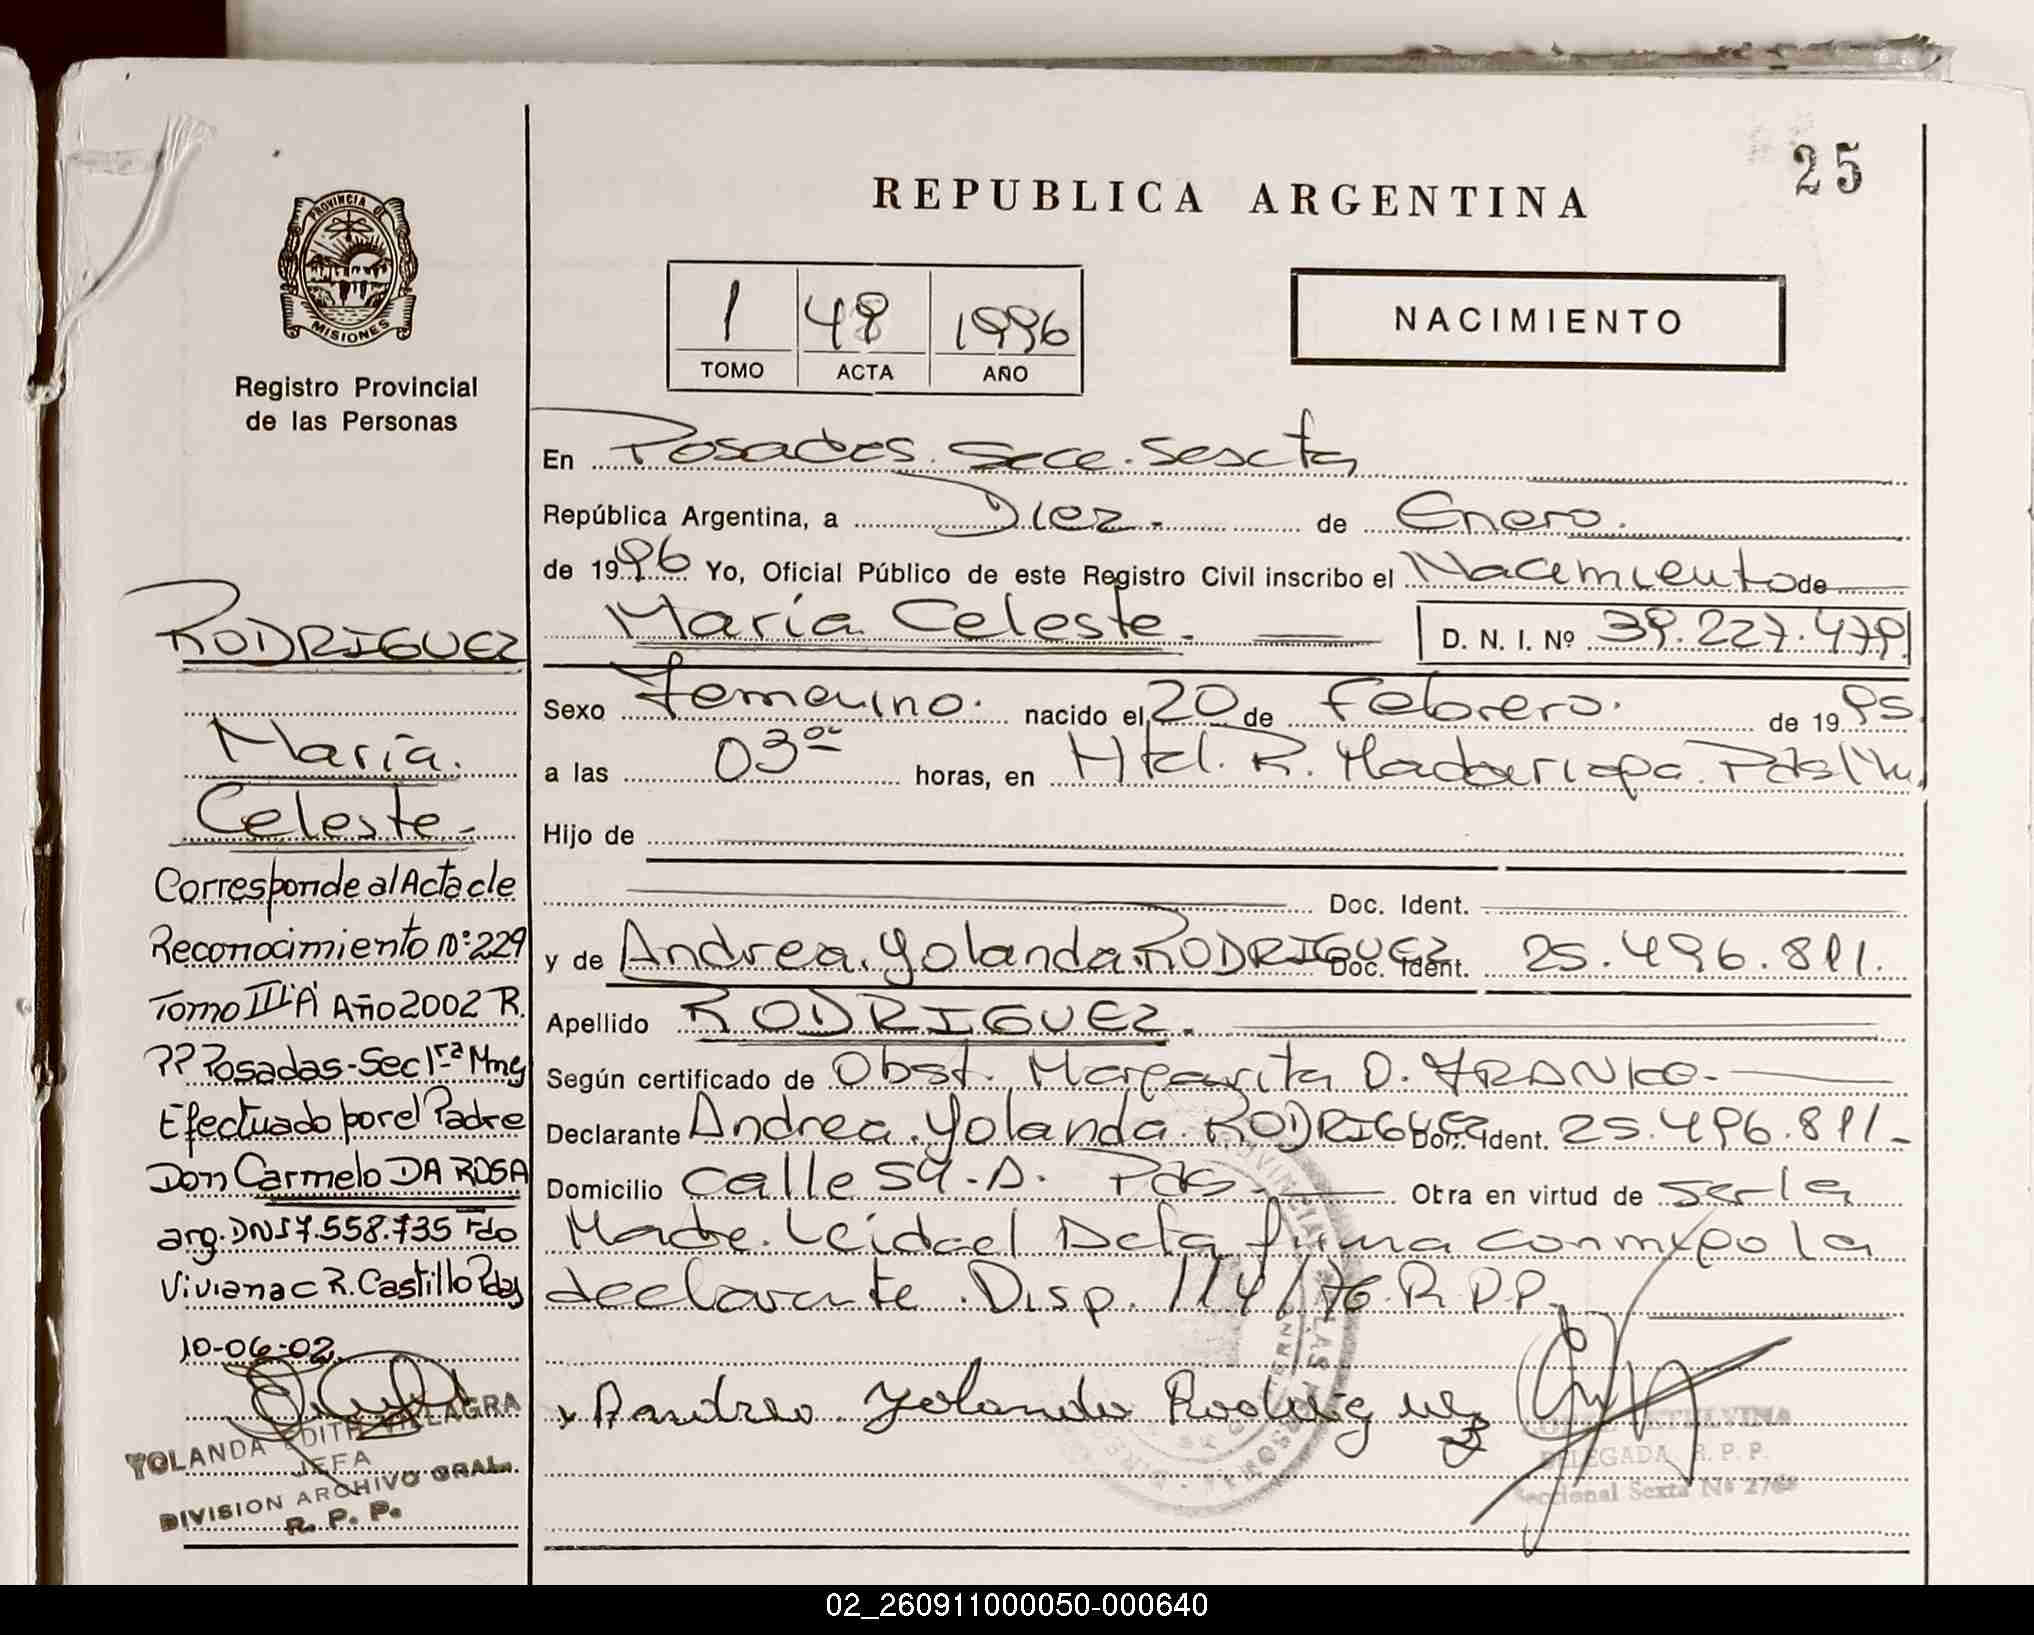 25
REPUBLICA ARGENTINA
PROVINCIA DE
MISIONES
Registro Provincial
de las Personas
1 48 1996
TOMO ACTA AÑO
NACIMIENTO
En Posadas. Secc. Sexta
República Argentina, a Diez. de Enero.
de 1996 Yo, Oficial Público de este Registro Civil inscribo el Nacimiento de
María Celeste. D. N. I. Nº 39.227.479
Sexo Femenino. nacido el 20 de Febrero. de 1995
a las 03 horas, en Htal. R. Madariaga. Pdas
Hijo de
Doc. Ident.
y de Andrea Yolanda RODRIGUEZ Doc. Ident. 25.496.811.
Apellido RODRIGUEZ.
Según certificado de Obst. Margarita O. FRANKO.
Declarante Andrea Yolanda RODRIGUEZ Doc. Ident. 25.496.811.
Domicilio Calle Pds Otra en virtud de ser la
Madre. Leida el Acta firma conmigo la
declarante. Disp. 114/76. R.P.P.
Andrea Yolanda Rodriguez
ETELVINA
DELEGADA R. P. P.
Seccional Sexta Nº
RODRIGUEZ
María.
Celeste.
Corresponde al Acta de
Reconocimiento Nº 229
Tomo III "A" Año 2002 R.
PP Posadas-Sec 1ra Mng
Efectuado por el Padre
Don Carmelo DA ROSA
arg. DNI 7.558.735 Fdo
Viviana c R. Castillo Pdas
10-06-02
YOLANDA EDITH VILLAGRA
JEFA
DIVISION ARCHIVO GRAL.
R. P. P.
02_260911000050-000640